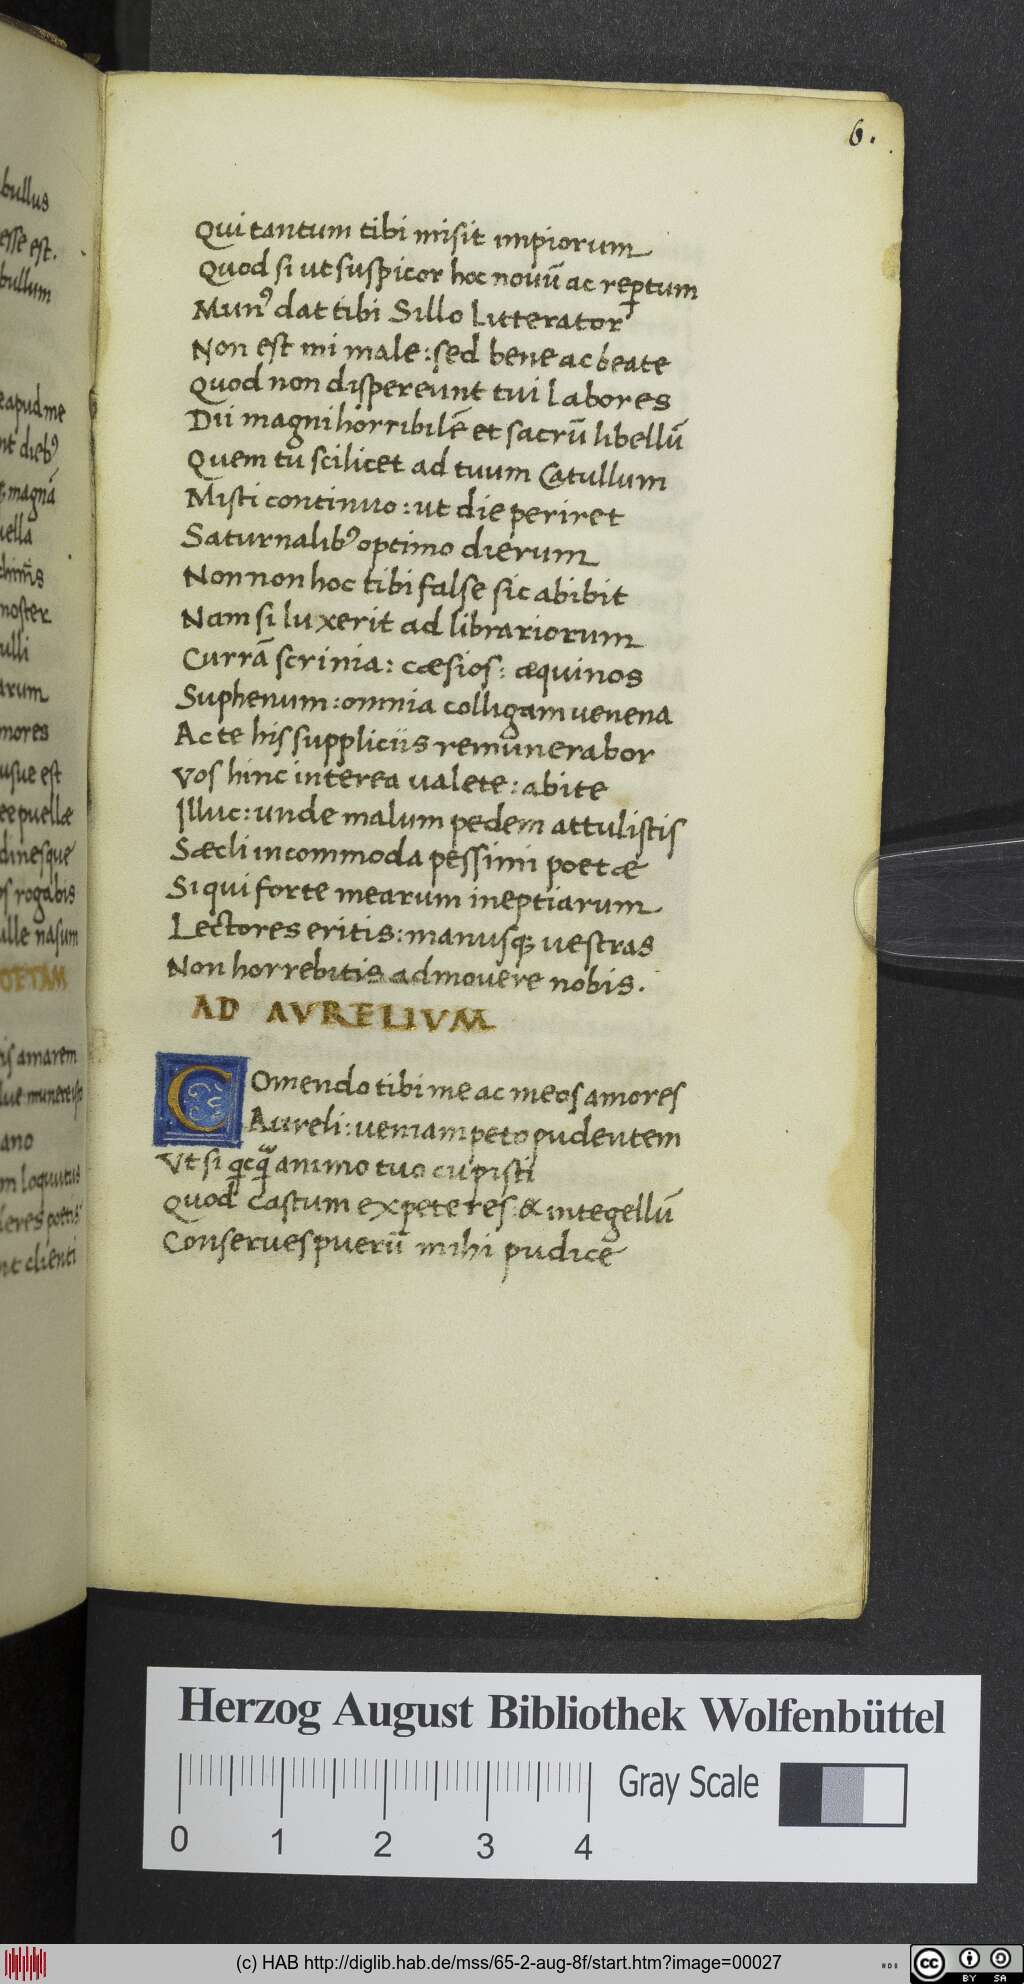 bullus
esse est.
bullum
eapud me
nt dieb⁹
magnā
uella
noster
ulli
arum
mores
usue est
ee puellæ
dinesque
os rogabis
ulle nasum
OETAM
is amarem
lue munere isto
ano
m loquutus
leres poetis
nt clienti
6.
Qui tantum tibi misit impiorum
Quod si ut suspicor hoc nouū ac reꝑtum
Mun⁹ dat tibi Sillo Litterator
Non est mi male: sed bene ac beate
Quod non dispereunt tui labores
Dii magni horribilē et sacrū libellū
Quem tu scilicet ad tuum Catullum
Misti continuo: ut die periret
Saturnalib⁹ optimo dierum
Non non hoc tibi false sic abibit
Nam si luxerit ad librariorum
Currā scrinia: cæsios: æquinos
Suphenum: omnia colligam uenena
Ac te his suppliciis remunerabor
Vos hinc interea ualete: abite
Illuc: unde malum pedem attulistis
Sæcli incommoda pessimi poetæ
Si qui forte mearum ineptiarum
Lectores eritis: manusq; uestras
Non horrebitis admouere nobis.
AD AVRELIVM
Comendo tibi me ac meos amores
Aureli: ueniam peto pudentem
Vt si qcq animo tuo cupisti
Quod castum expeteres: & integellū
Conserues puerū mihi pudice
Herzog August Bibliothek Wolfenbüttel
Gray Scale
0 1 2 3 4
(c) HAB http://diglib.hab.de/mss/65-2-aug-8f/start.htm?image=00027
cc BY SA